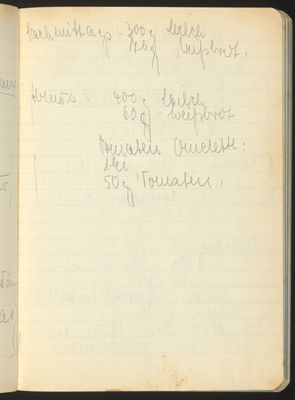 Nachmittags: 300g Milch
75g Weißbrot.
Abends: 200g Milch
60g Weißbrot
Tomaten Omelette:
1 Ei
50g Tomaten.